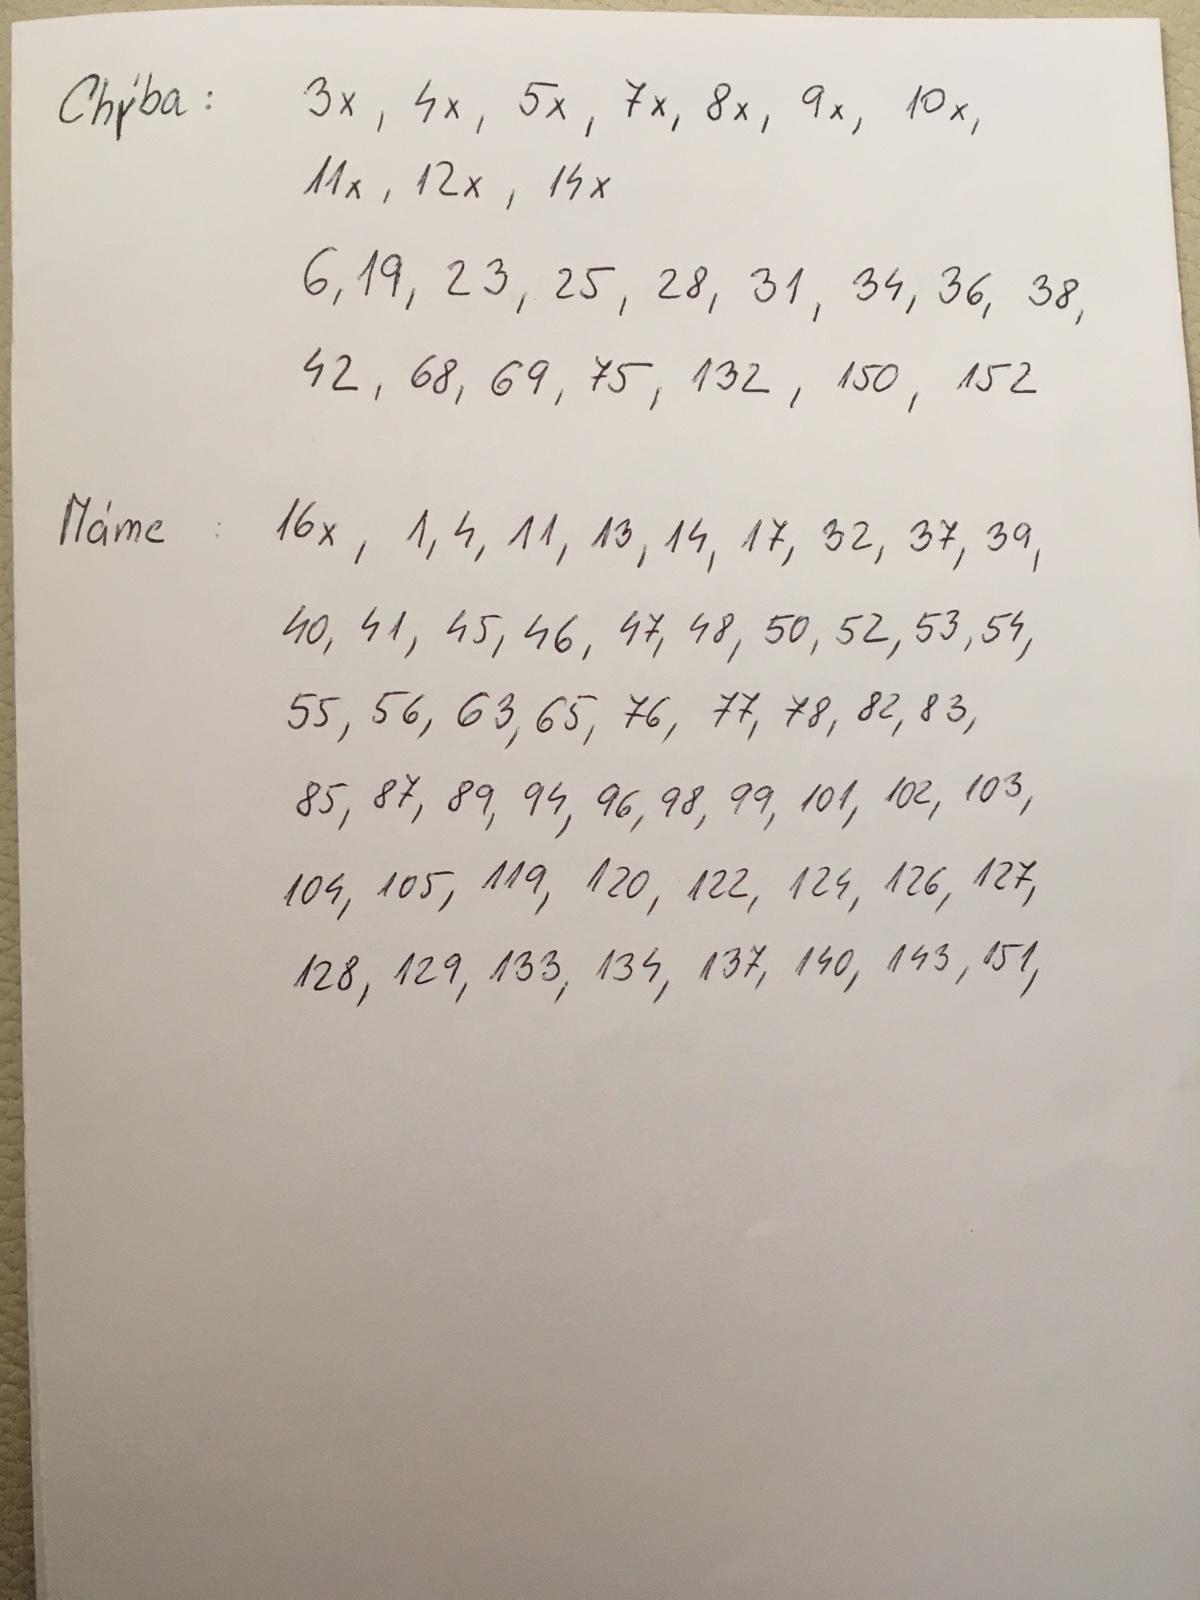 Chýba: 3x, 4x, 5x, 7x, 8x, 9x, 10x,
11x, 12x, 14x
6, 19, 23, 25, 28, 31, 34, 36, 38,
42, 68, 69, 75, 132, 150, 152
Máme: 16x, 1, 4, 11, 13, 14, 17, 32, 37, 39,
40, 41, 45, 46, 47, 48, 50, 52, 53, 54,
55, 56, 63, 65, 76, 77, 78, 82, 83,
85, 87, 89, 94, 96, 98, 99, 101, 102, 103,
104, 105, 119, 120, 122, 124, 126, 127,
128, 129, 133, 134, 137, 140, 143, 151,